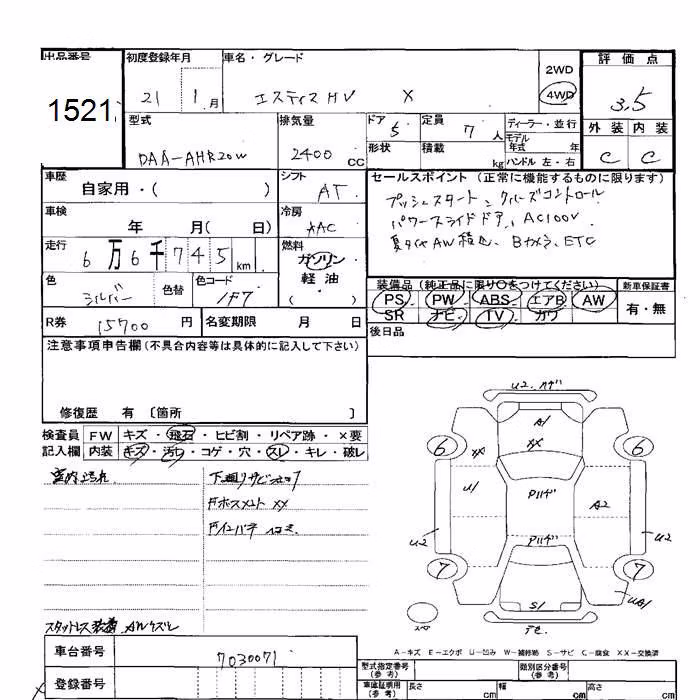 出品番号 初度登録年月 車名・グレード 2WD 評価点
1521 21 1月 エスティマHV X 4WD 3.5
型式 排気量 ドア 5 定員 7人 ディーラー・並行 外装 内装
DAA-AHR20W 2400cc 形状 積載 kg モデル年式 年 C C
ハンドル 左・右
車歴 シフト セールスポイント (正常に機能するものに限ります)
自家用・( ) AT プッシュスタート、クルーズコントロール
車検 冷房 パワースライドドア、AC100V
年 月( 日) AAC 夏タイヤAW積込、Bカメラ、ETC
走行 燃料
6万6千745km ガソリン
軽油
( )
色 色替 色コード 装備品 (純正品に限り○をつけてください) 新車保証書
シルバー 1F7 PS PW ABS エアB AW 有・無
SR ナビ TV カワ
R券 15700円 名変期限 月 日 後日品
注意事項申告欄(不具合内容等は具体的に記入して下さい)
修復歴 有 〔箇所 〕
検査員 FW キズ・飛石・ヒビ割・リペア跡・×要
記入欄 内装 キズ・汚レ・コゲ・穴・スレ・キレ・破レ
室内汚れ 下廻りサビ
スタットレス装着 AWキズ
車台番号 7030071
登録番号
U2 A1 XX XX 6 6 U1 A2 U2 U2 7 7 UA1 S1
スペア
A-キズ E-エクボ U-凹み W-補修跡 S-サビ C-腐食 XX-交換済
型式指定番号(参考) 類別区分番号(参考)
車庫証明用(参考) 長さ cm 幅 cm 高さ cm